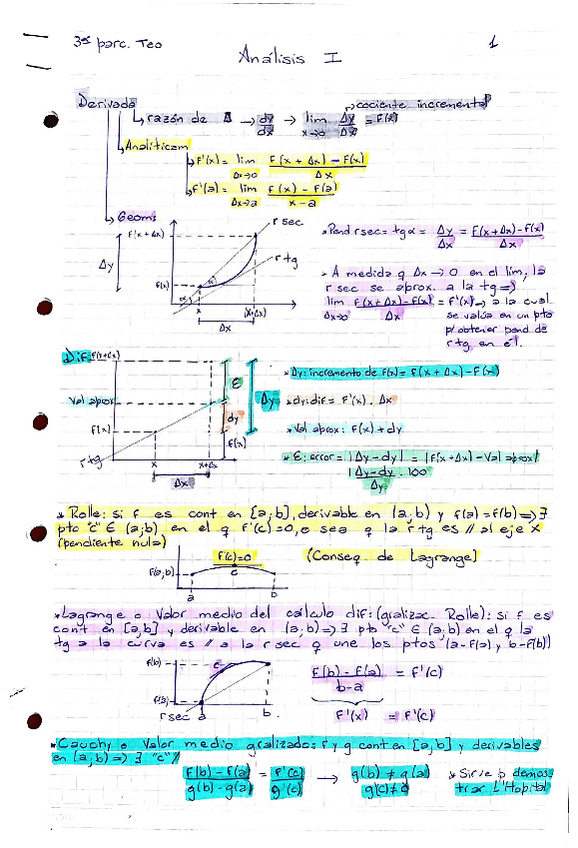 3er parc. Teo
1
Análisis I
Derivada
cociente incremental
razón de Δ → dy/dx → lim x→0 Δy/Δx = F'(x)
Analíticam
F'(x) = lim Δx→0 F(x + Δx) - F(x) / Δx
F'(a) = lim Δx→a F(x) - F(a) / x - a
Geom:
r sec
F(x + Δx)
r tg
Δy
F(x)
α
x
(x+Δx)
Δx
* Pend r sec = tg α = Δy/Δx = F(x+Δx)-F(x) / Δx
* A medida q Δx → 0 en el lim, la
r sec se aprox. a la tg ⇒
lim Δx→0 F(x+Δx)-F(x) / Δx = F'(x) → a la cual
se valúa en un pto
p/ obtener pend de
r tg en él.
Dif:
F(x+Δx)
Val aprox
F(x)
r tg
x
x+Δx
Δx
E
dy
F(x)
Δy
* Δy: incremento de F(x) = F(x + Δx) - F(x)
* dy: dif = F'(x) . Δx
* Val aprox: F(x) + dy
* E: error = |Δy - dy| = |F(x+Δx) - Val aprox|
|Δy - dy| . 100 / Δy
* Rolle: si F es cont en [a;b], derivable en (a;b) y f(a)=f(b) ⇒ ∃
pto "c" ∈ (a;b) en el q F'(c)=0, o sea q la r tg es // al eje x
(pendiente nula)
F'(c)=0
(Conseq. de Lagrange)
F(a,b)
c
a
b
* Lagrange o Valor medio del cálculo dif: (gralizac. Rolle): si F es
cont en [a,b] y derivable en (a;b) ⇒ ∃ pto "c" ∈ (a;b) en el q la
tg a la curva es // a la r sec q une los ptos (a-F(a) y b-F(b))
F(b)
c
F(a)
r sec
a
b
F(b) - F(a) / b-a = F'(c)
F'(x) = F'(c)
* Cauchy o Valor medio gralizado: F y g cont en [a,b] y derivables
en (a;b) ⇒ ∃ "c" //
F(b) - F(a) / g(b) - g(a) = F'(c) / g'(c) → g(b) ≠ g(a)
g'(c) ≠ 0
* Sirve p demos
trar L'Hopital